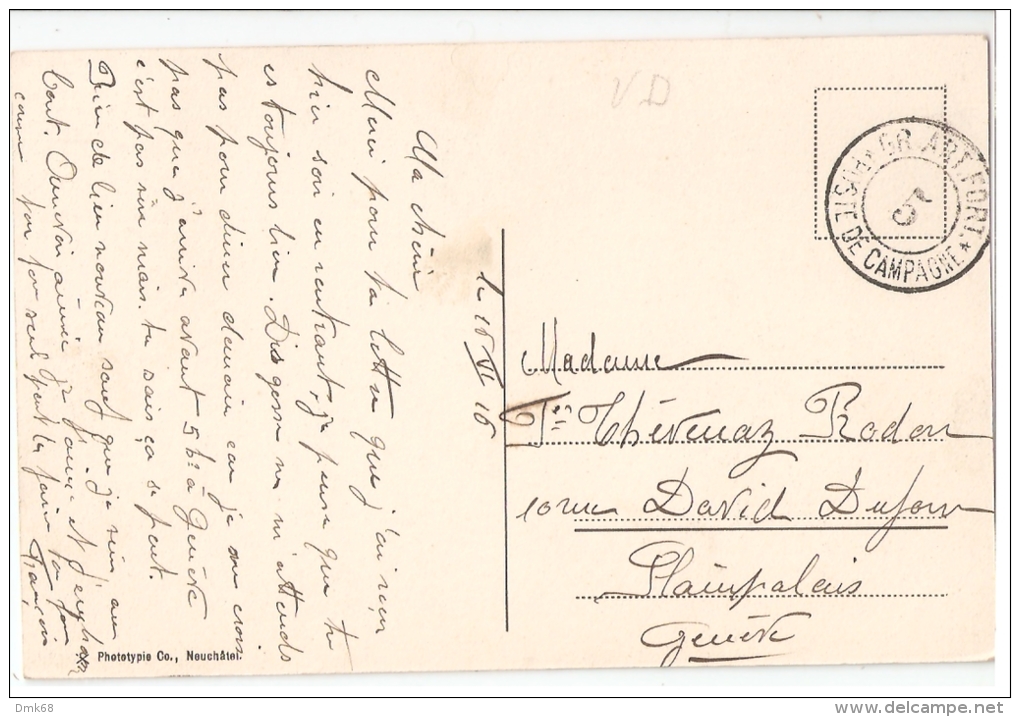 Ma chérie
Merci pour ta lettre que j'ai reçu
hier soir en rentrant, je pense que tu
es toujours bien. Dis gosse ne m'attends
pas pour diner demain car je ne crois
pas que j'arrive avant 5 h. à Genève
c'est pas sûr mais tu sais ça se peut.
Rien de bien nouveau sauf que je suis au
bout. Aurevoir aimée je
comme
ton
François
Phototypie Co., Neuchâtel.
le 15 VI 16
VD
GR. ART. FORT.
STE DE CAMPAGNE
5
Madame
Fçs Thévenaz Rodon
10 rue David Dufour
Plainpalais
Genève
Dmk68
www.delcampe.net